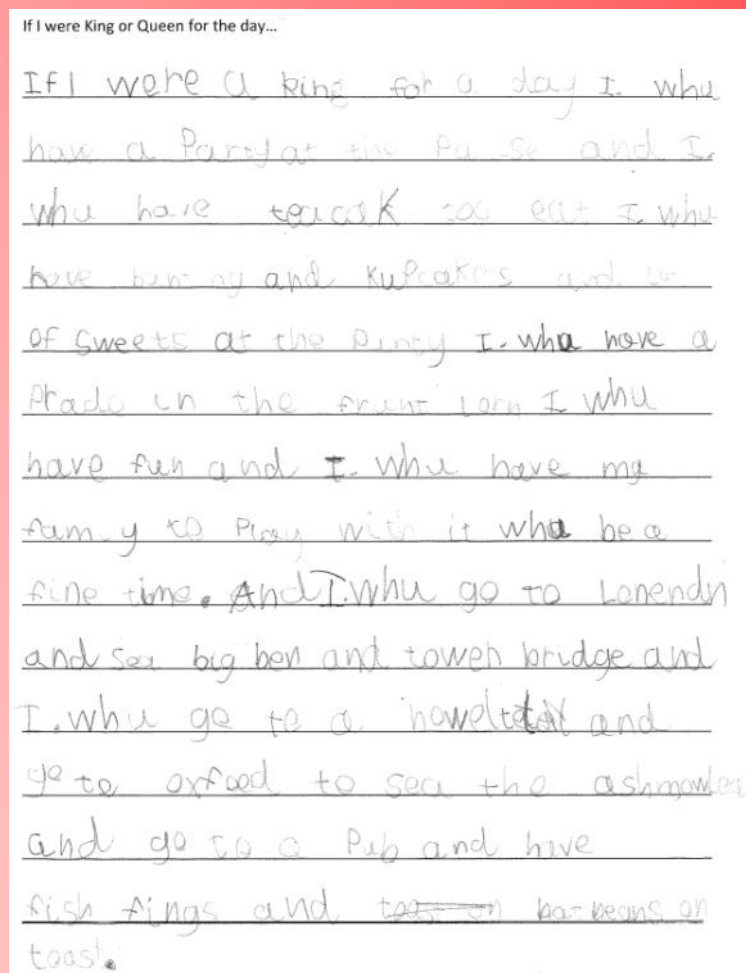 If I were King or Queen for the day...
If I were a king for a day I. whu
have a Party at the and I.
whu have teacak too eat I whu
have and Kupcakes and
of Sweets at the I. whu have a
in the frunt I whu
have fun and I. whu have my
to Play with it whu be a
fine time. And I. whu go to Lonendn
and sea big ben and tower bridge and
I. whu go to a and
go to oxfaod to sea the
and go to a Pub and have
fish fings and beans on
toast.